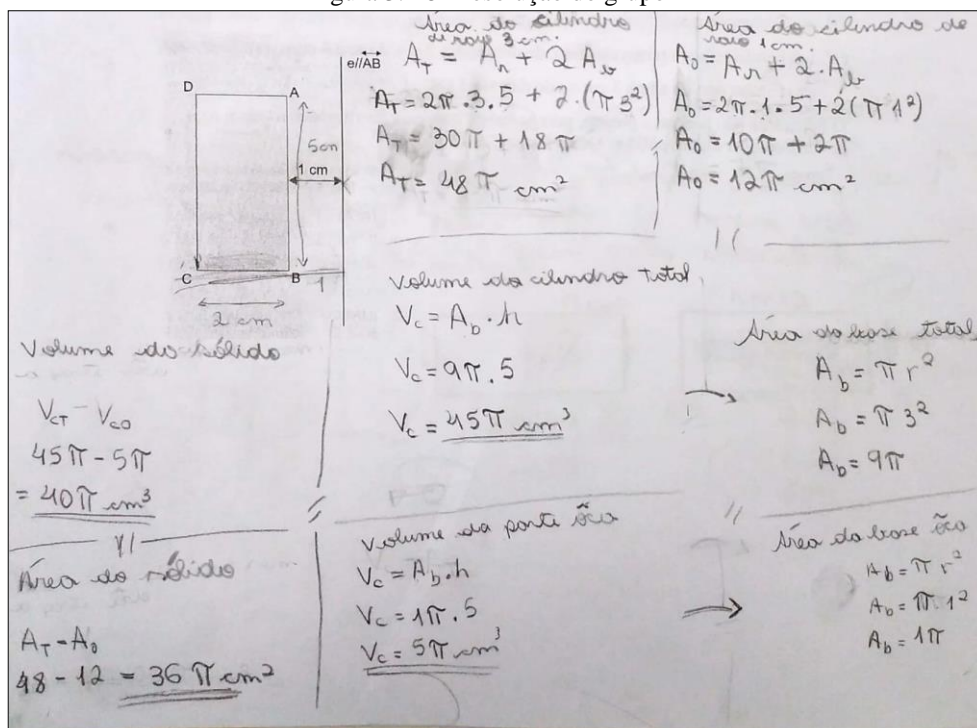 D
A
e//AB
5cm
1 cm
C
B
1
2 cm
Área do cilindro
de raio 3 cm.
A_T = A_n + 2 A_b
A_T = 2π.3.5 + 2.(π3²)
A_T = 30π + 18π
A_T = 48π cm²
Área do cilindro de
raio 1 cm.
A_0 = A_n + 2.A_b
A_0 = 2π.1.5 + 2(π1²)
A_0 = 10π + 2π
A_0 = 12π cm²
Volume do cilindro total
V_c = A_b . h
V_c = 9π.5
V_c = 45π cm³
Área da base total
A_b = π r²
A_b = π 3²
A_b = 9π
Volume do sólido
V_CT - V_CO
45π - 5π
= 40π cm³
Volume da parte ôca
V_c = A_b.h
V_c = 1π.5
V_c = 5π cm³
Área da base ôca
A_b = π r²
A_b = π 1²
A_b = 1π
Área do sólido
A_T - A_0
48 - 12 = 36 π cm²